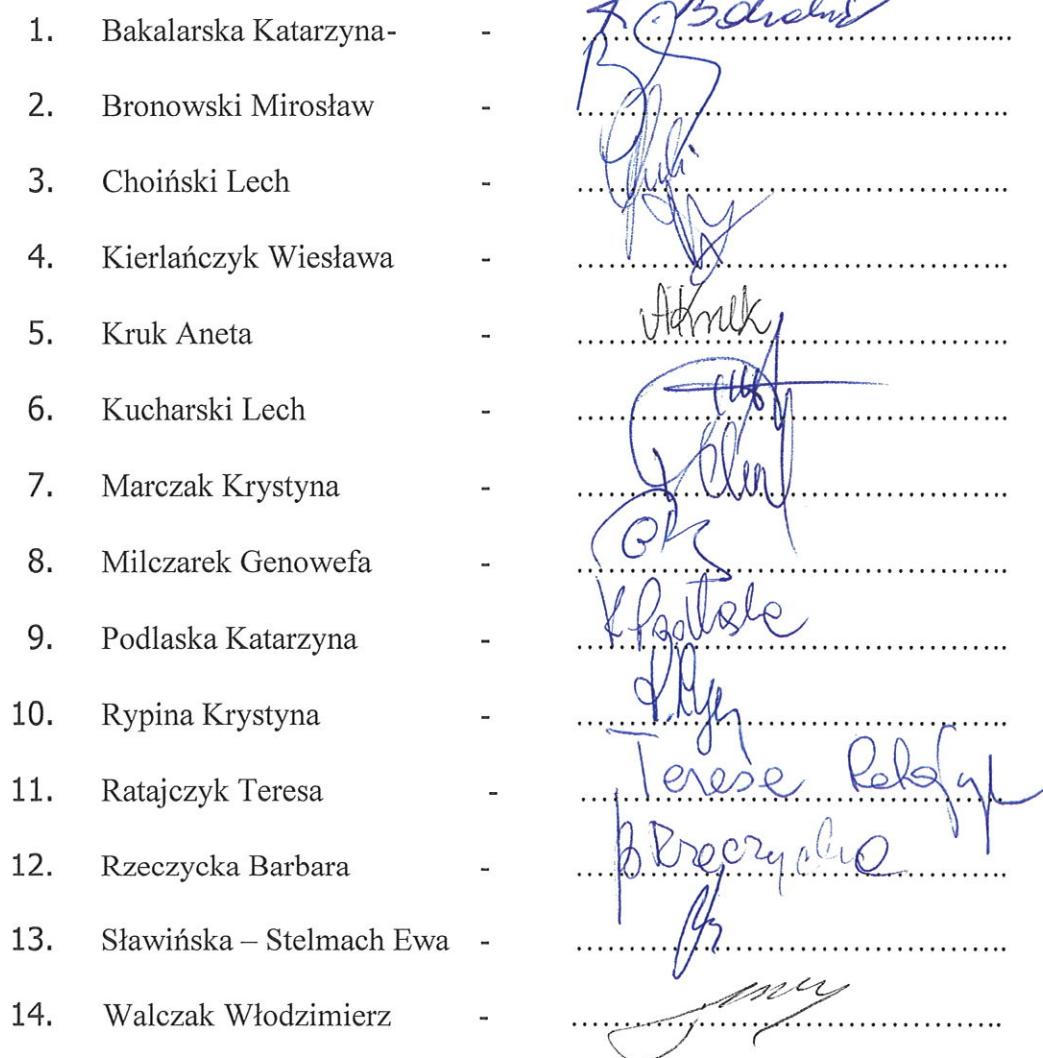 1. Bakalarska Katarzyna- - ........................................
2. Bronowski Mirosław - ........................................
3. Choiński Lech - ........................................
4. Kierlańczyk Wiesława - ........................................
5. Kruk Aneta - AKruk ........................................
6. Kucharski Lech - ........................................
7. Marczak Krystyna - ........................................
8. Milczarek Genowefa - ........................................
9. Podlaska Katarzyna - K Podlaska ........................................
10. Rypina Krystyna - ........................................
11. Ratajczyk Teresa - Teresa Ratajczyk ........................................
12. Rzeczycka Barbara - B Rzeczycka ........................................
13. Sławińska – Stelmach Ewa - ........................................
14. Walczak Włodzimierz - ........................................